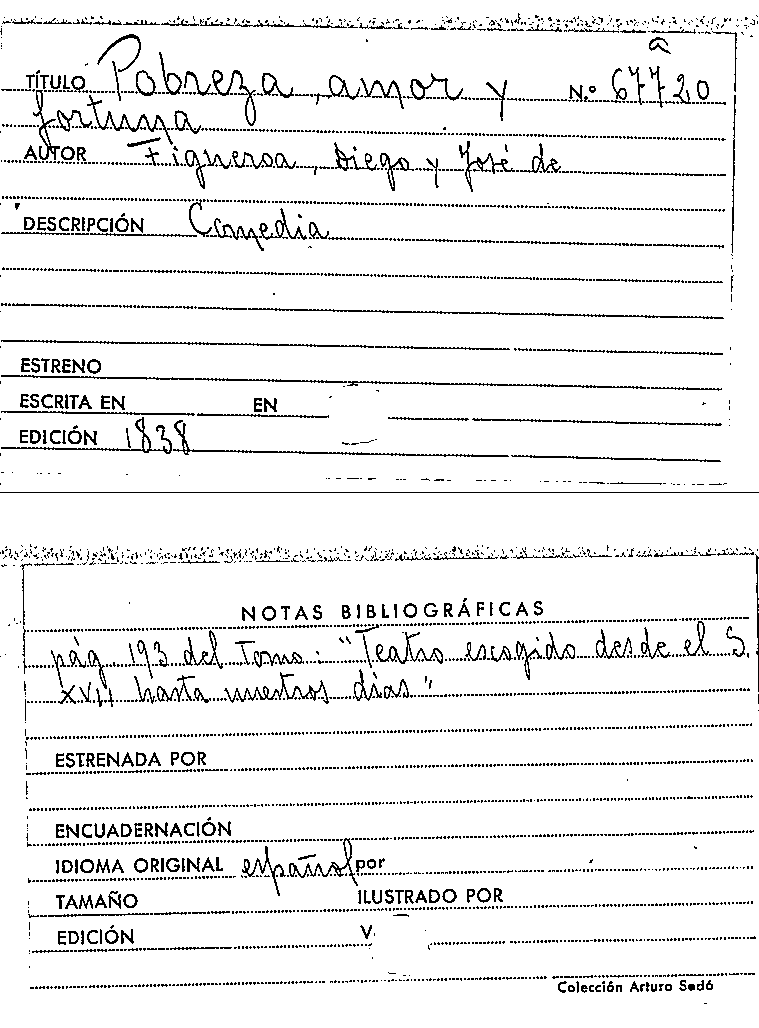 a
TÍTULO Pobreza, amor y N.º 67720
fortuna
AUTOR Figueroa, Diego y José de
DESCRIPCIÓN Comedia
ESTRENO
ESCRITA EN EN
EDICIÓN 1838
NOTAS BIBLIOGRÁFICAS
pág 193 del Tomo: "Teatro escogido desde el S.
XVII hasta nuestros días"
ESTRENADA POR
ENCUADERNACIÓN
IDIOMA ORIGINAL español por
TAMAÑO ILUSTRADO POR
EDICIÓN V.
Colección Arturo Sedó